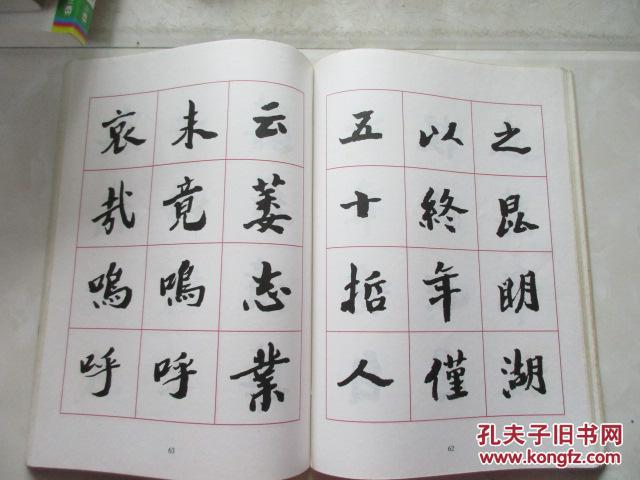 之昆明湖
以終年僅
五十哲人
云萎志業
未竟嗚呼
哀哉嗚呼
63
62
孔夫子旧书网
KONGFZ.COM